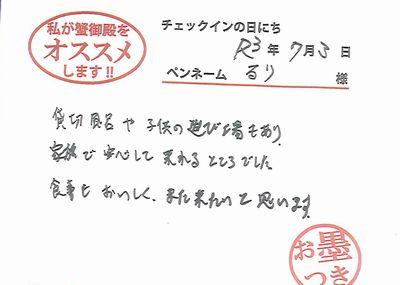 私が蟹御殿を
オススメ
します!!
チェックインの日にち
R3年 7月5日
ペンネーム るり 様
貸切風呂や子供の遊び場もあり
家族で安心して来れるところでした
食事もおいしく、また来たいと思います
お墨
つき